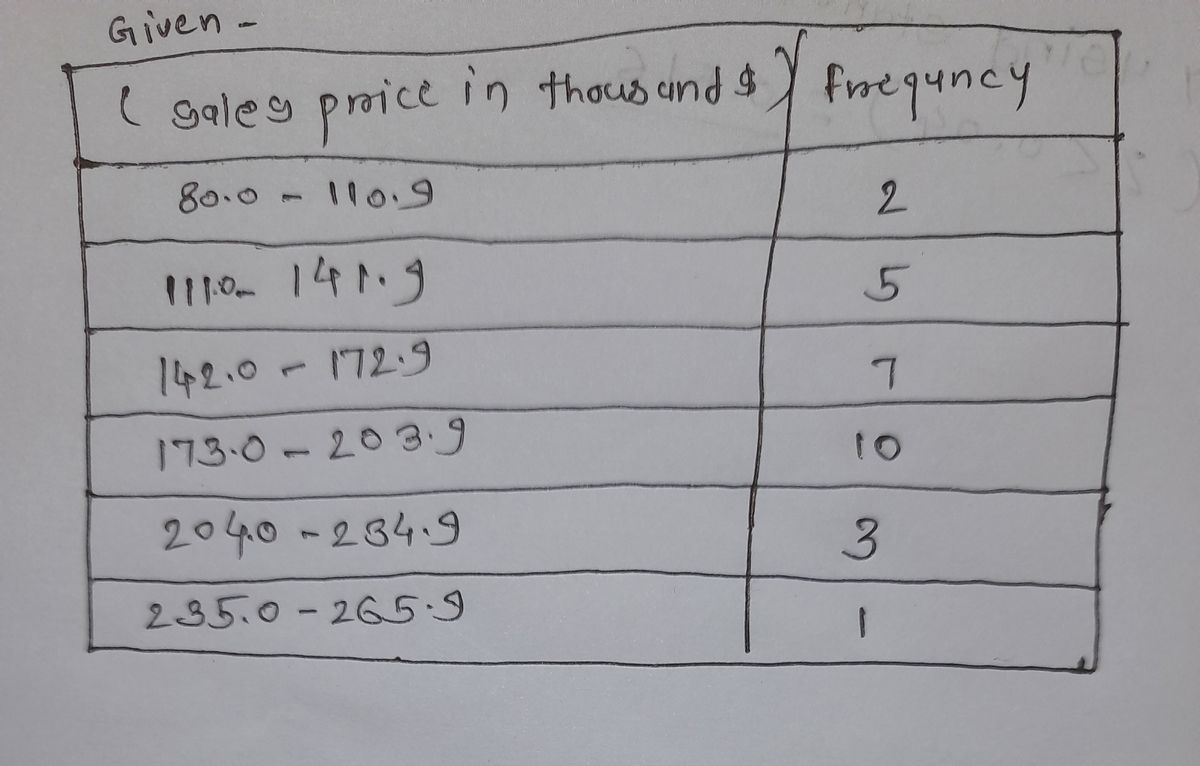 Given -
( sales price in thousand $ ) frequncy
80.0 - 110.9 2
111.0- 141.9 5
142.0 - 172.9 7
173.0 - 203.9 10
204.0 - 234.9 3
235.0 - 265.9 1